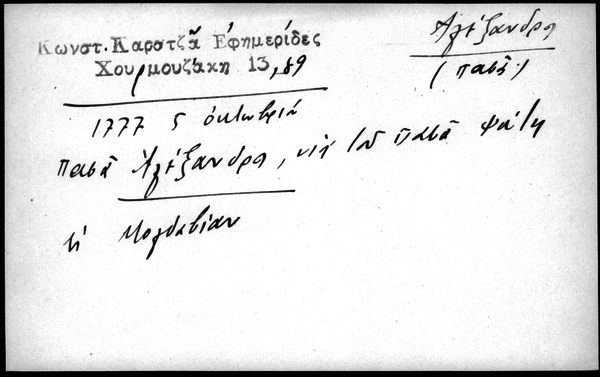 Κωνστ. Καρατζᾶ Ἐφημερίδες
Χουρμουζάκη 13,89
Ἀλέξανδρο
(πασᾶ)
1777 5 ὀκτωβρίου
πασᾶ Ἀλέξανδρο, υἱὸ τοῦ πασᾶ
εἰς Μολδαβίαν